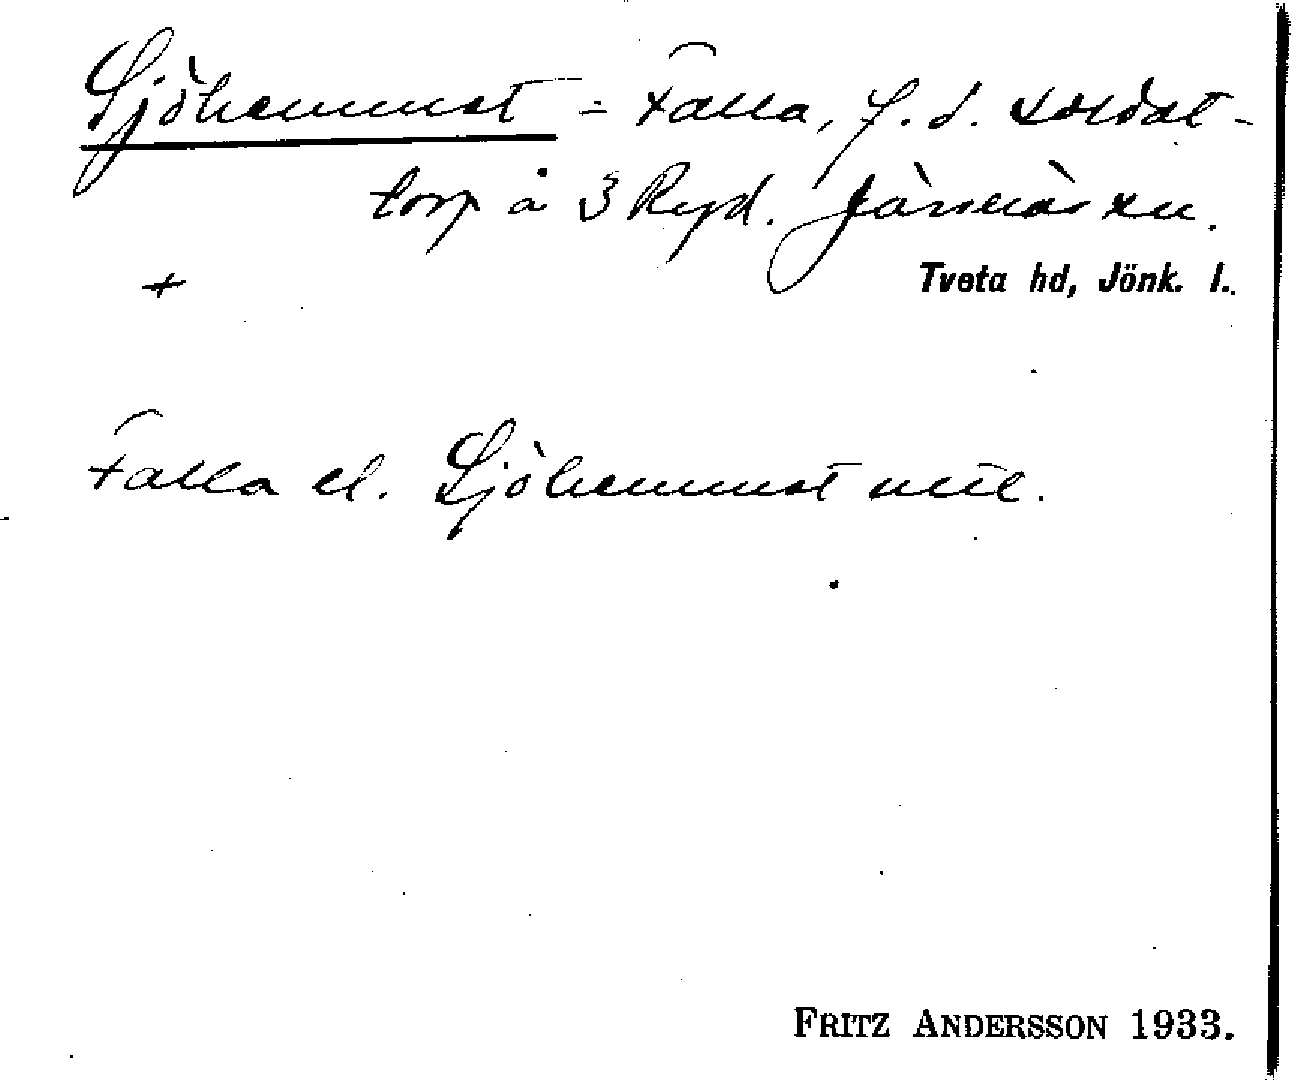 Sjöhemmet = Falla, f. d. soldat-
torp å 3 Ryd. Järsnäs sn.
+ Tveta hd, Jönk. l.
Falla el. Sjöhemmet
FRITZ ANDERSSON 1933.